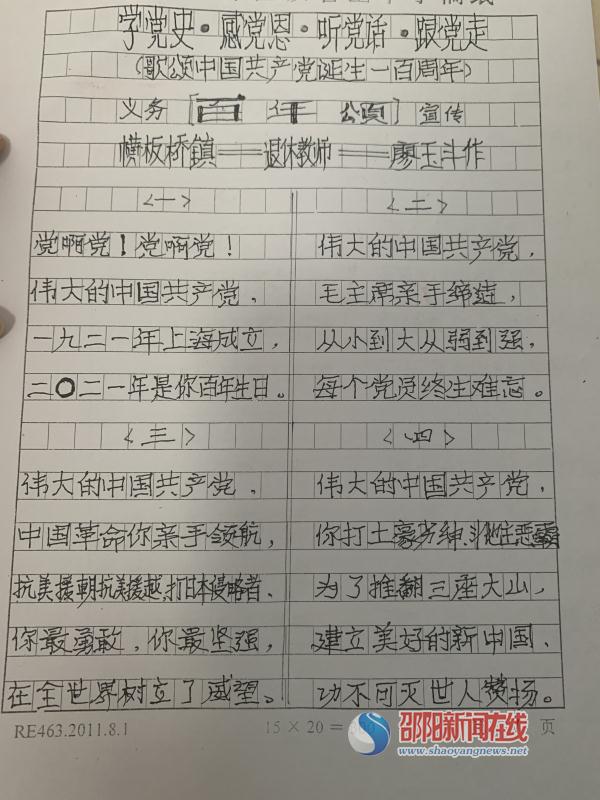 学党史·感党恩·听党话·跟党走
(歌颂中国共产党诞生一百周年)
义务[百年公页]宣传
横板桥镇——退休教师——廖玉斗作
<一>
党啊党!党啊党!
伟大的中国共产党,
一九二一年上海成立,
二〇二一年是你百年生日。
<二>
伟大的中国共产党,
毛主席亲手缔造,
从小到大从弱到强,
每个党员终生难忘。
<三>
伟大的中国共产党,
中国革命你亲手领航,
抗美援朝抗美援越,打日本侵略者、
你最勇敢,你最坚强,
在全世界树立了威望。
<四>
伟大的中国共产党,
你打土豪劣绅、斗地主恶霸
为了推翻三座大山,
建立美好的新中国、
功不可灭世人赞扬。
RE463.2011.8.1
15×20=
页
邵阳新闻在线
www.shaoyangnews.net